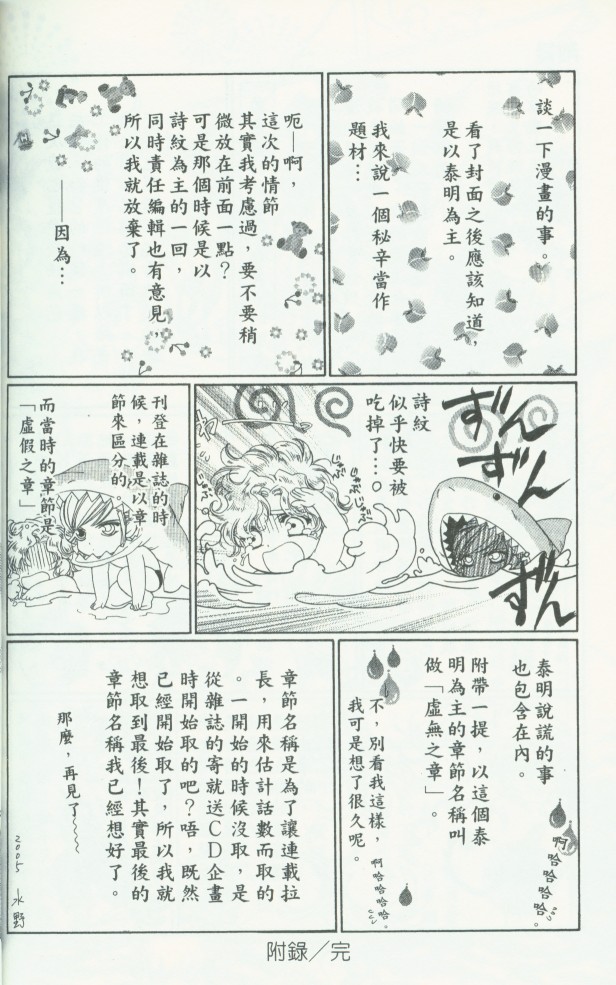 談一下漫畫的事。
看了封面之後應該知道，
是以泰明為主。
我來說一個秘辛當作
題材…
呃—啊，
這次的情節
其實我考慮過，要不要稍
微放在前面一點？
可是那個時候是以
詩紋為主的一回，
同時責任編輯也有意見，
所以我就放棄了。
——因為…
ずんずん
ずん
詩紋
似乎快要被
吃掉了…。
刊登在雜誌的時
候，連載是以章
節來區分的。
而當時的章節是
「虛假之章」
泰明說謊的事
也包含在內。
啊哈哈哈哈。
附帶一提，以這個泰
明為主的章節名稱叫
做「虛無之章」。
不，別看我這樣，
我可是想了很久呢。
啊哈哈哈哈。
章節名稱是為了讓連載拉
長，用來估計話數而取的
。一開始的時候沒取，是
從雜誌的寄就送CD企畫
時開始取的吧？唔，既然
已經開始取了，所以我就
想取到最後！其實最後的
章節名稱我已經想好了。
那麼，再見了～～～
2005 水野
附錄／完